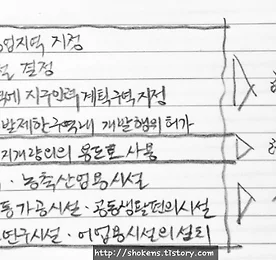 업지역 지정
설 결정
지구인력 계획구역 지정
발제한구역내 개발행위허가
지개량외의 용도로 사용
· 농축산업용시설
동가공시설 · 공동생활편의시설
연구시설 · 어업용시설의 설치
http://shokens.tistory.com